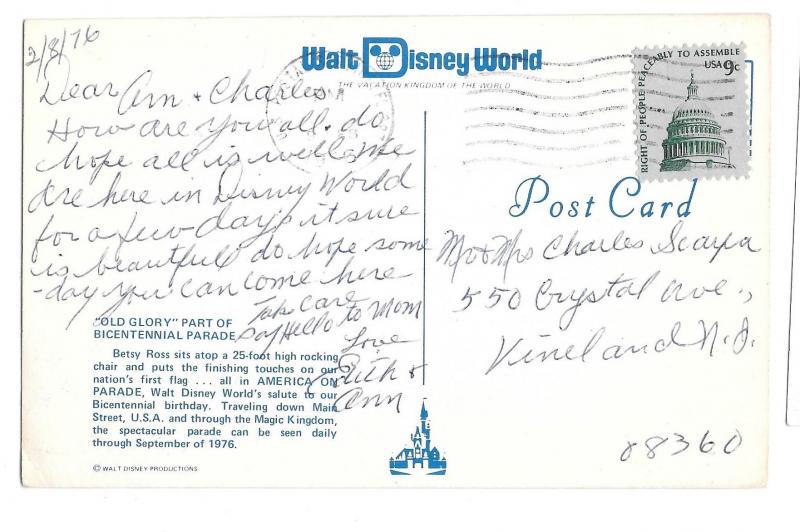 2/8/76
Walt Disney World
THE VACATION KINGDOM OF THE WORLD
RIGHT OF PEOPLE PEACEABLY TO ASSEMBLE
USA 9c
Dear Ann + Charles
How are you all. do
hope all is well. We
are here in Disney World
for a few days it sure
is beautiful do hope some
-day you can come here
Take Care
Say Hello to Mom
Love
Edith &
Ann
Post Card
Mr & Mrs Charles Scarpa
550 Crystal Ave.,
Vineland N.J.
08360
"OLD GLORY" PART OF
BICENTENNIAL PARADE
Betsy Ross sits atop a 25-foot high rocking
chair and puts the finishing touches on our
nation's first flag . . . all in AMERICA ON
PARADE, Walt Disney World's salute to our
Bicentennial birthday. Traveling down Main
Street, U.S.A. and through the Magic Kingdom,
the spectacular parade can be seen daily
through September of 1976.
© WALT DISNEY PRODUCTIONS